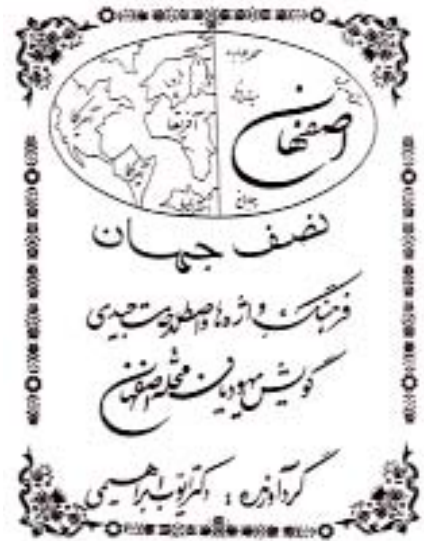 اصفهان
آفریقا
نصف جهان
فرهنگ واژه‌ها و اصطلاحات جیدی
گویش یهودیان محله اصفهان
گردآورنده : دکتر ایوب ابراهیمی